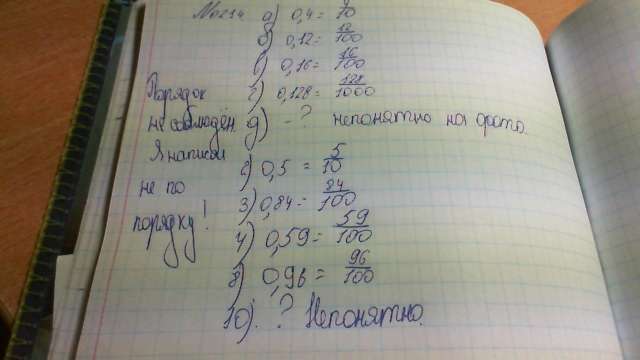 №214. а) 0,4 = 4/10
б) 0,12 = 12/100
в) 0,16 = 16/100
г) 0,128 = 128/1000
д) - ? непонятно на фото.
Порядок
не соблюдён.
Я написал
не по
порядку!
0,5 = 5/10
3) 0,84 = 84/100
0,59 = 59/100
8) 0,96 = 96/100
10) ? Непонятно.